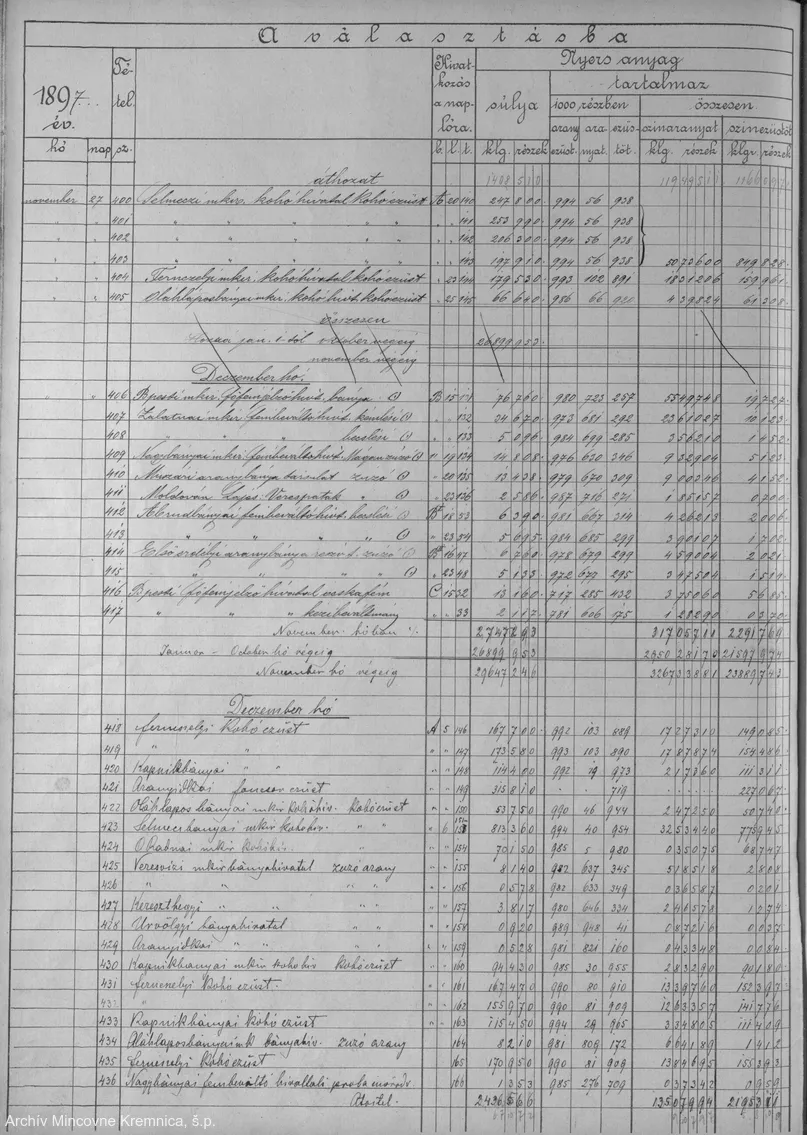 A választásba
1897. év.
Té-tel. sz.
Hivat-kozás a nap-lóra.
Nyers anyag
súlya
tartalmaz
1000 részben
összesen
arany ezüst. ara nyat. ezüs-töt. színaranyat színezüstöt
hó nap b. l. t. klg. részek klg. részek klgr. részek
áthozat 1408510
november 27 400 Selmeczi mkir. kohóhivatal kohóezüst A 20 140 247 800 994 56 938
" " 401 " " " " " 141 253 990 994 56 938
" " 402 " " " " " 142 206 300 994 56 938
" " 403 " " " " " 143 197 910 994 56 938 50 73600 849 828
" " 404 Fernezelyi mkir. kohóhivatal kohóezüst " 23 144 179 530 993 102 891 18 31206 159 961
" " 405 Oláhlaposbányai mkir. kohóhivt. kohóezüst " 25 145 66 640 986 66 920 4 39824 61 308
összesen
október végéig 26899 953
november végéig
Deczember hó.
" " 406 Bpesti mkir. főfémjelző hivt. bánya B 15 131 76 760 980 723 257 55 49748 19 727
407 Zalatnai mkir. fémbeváltó hivt. kémlési " " 132 34 670 973 681 292 23 61027 10 123
408 " " beolvási " " 133 5 096 984 699 285 3 56210 1 452
409 Nagybányai mkir. fémbeváltó hivt. Magán zuzó " 19 134 14 808 976 630 346 9 32904 5 123
410 Muzsári aranybánya társulat zuzó " 20 135 13 438 979 670 309 9 00346 4 152
411 Moldován Lajos Verespatak " " 23 136 2 586 987 716 271 1 85157 0 700
412 Abrudbányai fémbeváltó hivt. 18 53 6 390 981 667 314 4 26213 2 006
413 " " " " 23 54 5 695 984 685 299 3 90107 1 702
414 Első erdélyi aranybánya részvt. zuzó 16 47 6 760 978 679 299 4 59004 2 021
415 " " " " " 23 48 5 133 972 679 295 3 47504 1 509
416 Bpesti főfémjelző hivatal vaskafém C 15 32 13 160 717 285 432 3 75060 5 685
417 " " " kézibeváltmány " " 33 2 117 781 606 175 1 28290 0 370
November hóban 2747 293 317 05711 2291 769
Januar - October hó végéig 26899 953 2950 28170 21597 974
November hó végéig 29647 246 3267 33881 23889 743
Deczember hó
418 Fernezelyi Kohóezüst A 5 146 167 700 992 103 889 17 27310 149 085
419 " " " " 147 173 580 993 103 890 17 87874 154 486
420 Kapnikbányai " " " " 148 114 400 992 19 973 2 17360 111 311
421 Aranyidkai foncsor ezüst " " 149 315 810 . 719 227 067
422 Oláhlaposbányai mkir kohóhiv. Kohóezüst " " 150 53 750 990 46 944 2 47250 50 740
423 Selmeczbanyai mkir kohohiv. " " " 6 813 360 994 40 954 32 53440 775 945
424 O Radnai mkir kohóhi. " " " " 154 70 150 985 5 980 0 35075 68 747
425 Veresvizi mkir bányahivatal zuzó arany " " 155 8 140 982 637 345 5 18518 2 808
426 " " " " " " 156 0 578 982 633 349 0 36587 0 201
427 Kereszthegyi " " " " 157 3 817 980 646 334 2 46578 1 274
428 Urvölgyi bányahivatal " " " 158 0 920 989 948 41 0 87216 0 037
429 Aranyidkai " " " " 159 0 528 981 821 160 0 43348 0 084
430 Kapnikbányai mkir kohohiv Kohóezüst " " 160 94 430 985 30 955 2 83290 90 180
431 Fernezelyi Kohó ezüst. " " 161 167 470 990 80 910 13 39760 152 397
432 " " " 162 155 970 990 81 909 12 63357 141 776
433 Kapnikbányai Kohó ezüst " " 163 115 450 994 29 965 3 34805 111 409
434 Oláhlaposbányai mk bányahiv. zuzó arany 164 8 210 981 809 172 6 64189 1 412
435 Fernezelyi Kohó ezüst 165 170 950 990 81 909 13 84695 155 393
436 Nagybányai fembeváltó hivatali proba 166 1 353 985 276 709 0 37342 0 959
Átvitel. 2436 566 135 07994 2195 311
Archív Mincovne Kremnica, š.p.